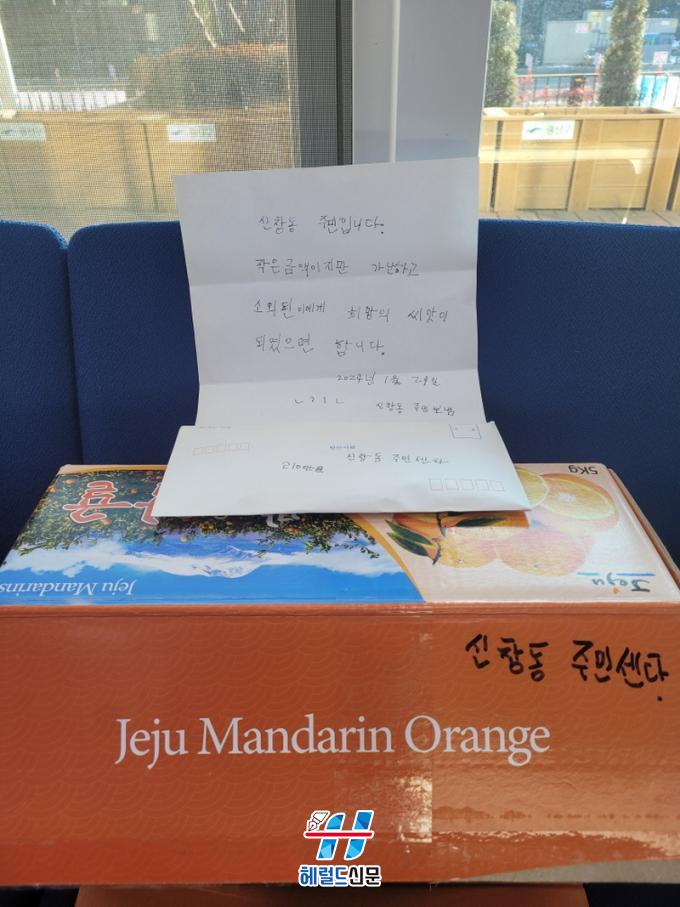 광산구
광산구
신창동 주민입니다.
작은금액이지만 가난하고
소외된이에게 희망의 씨앗이
되였으면 합니다.
2024년 1월 29일
신창동 주민보냄
신창동 주민센타
5Kg
Jeju
Jeju Mandarins
신창동 주민센타.
Jeju Mandarin Orange
헤럴드신문